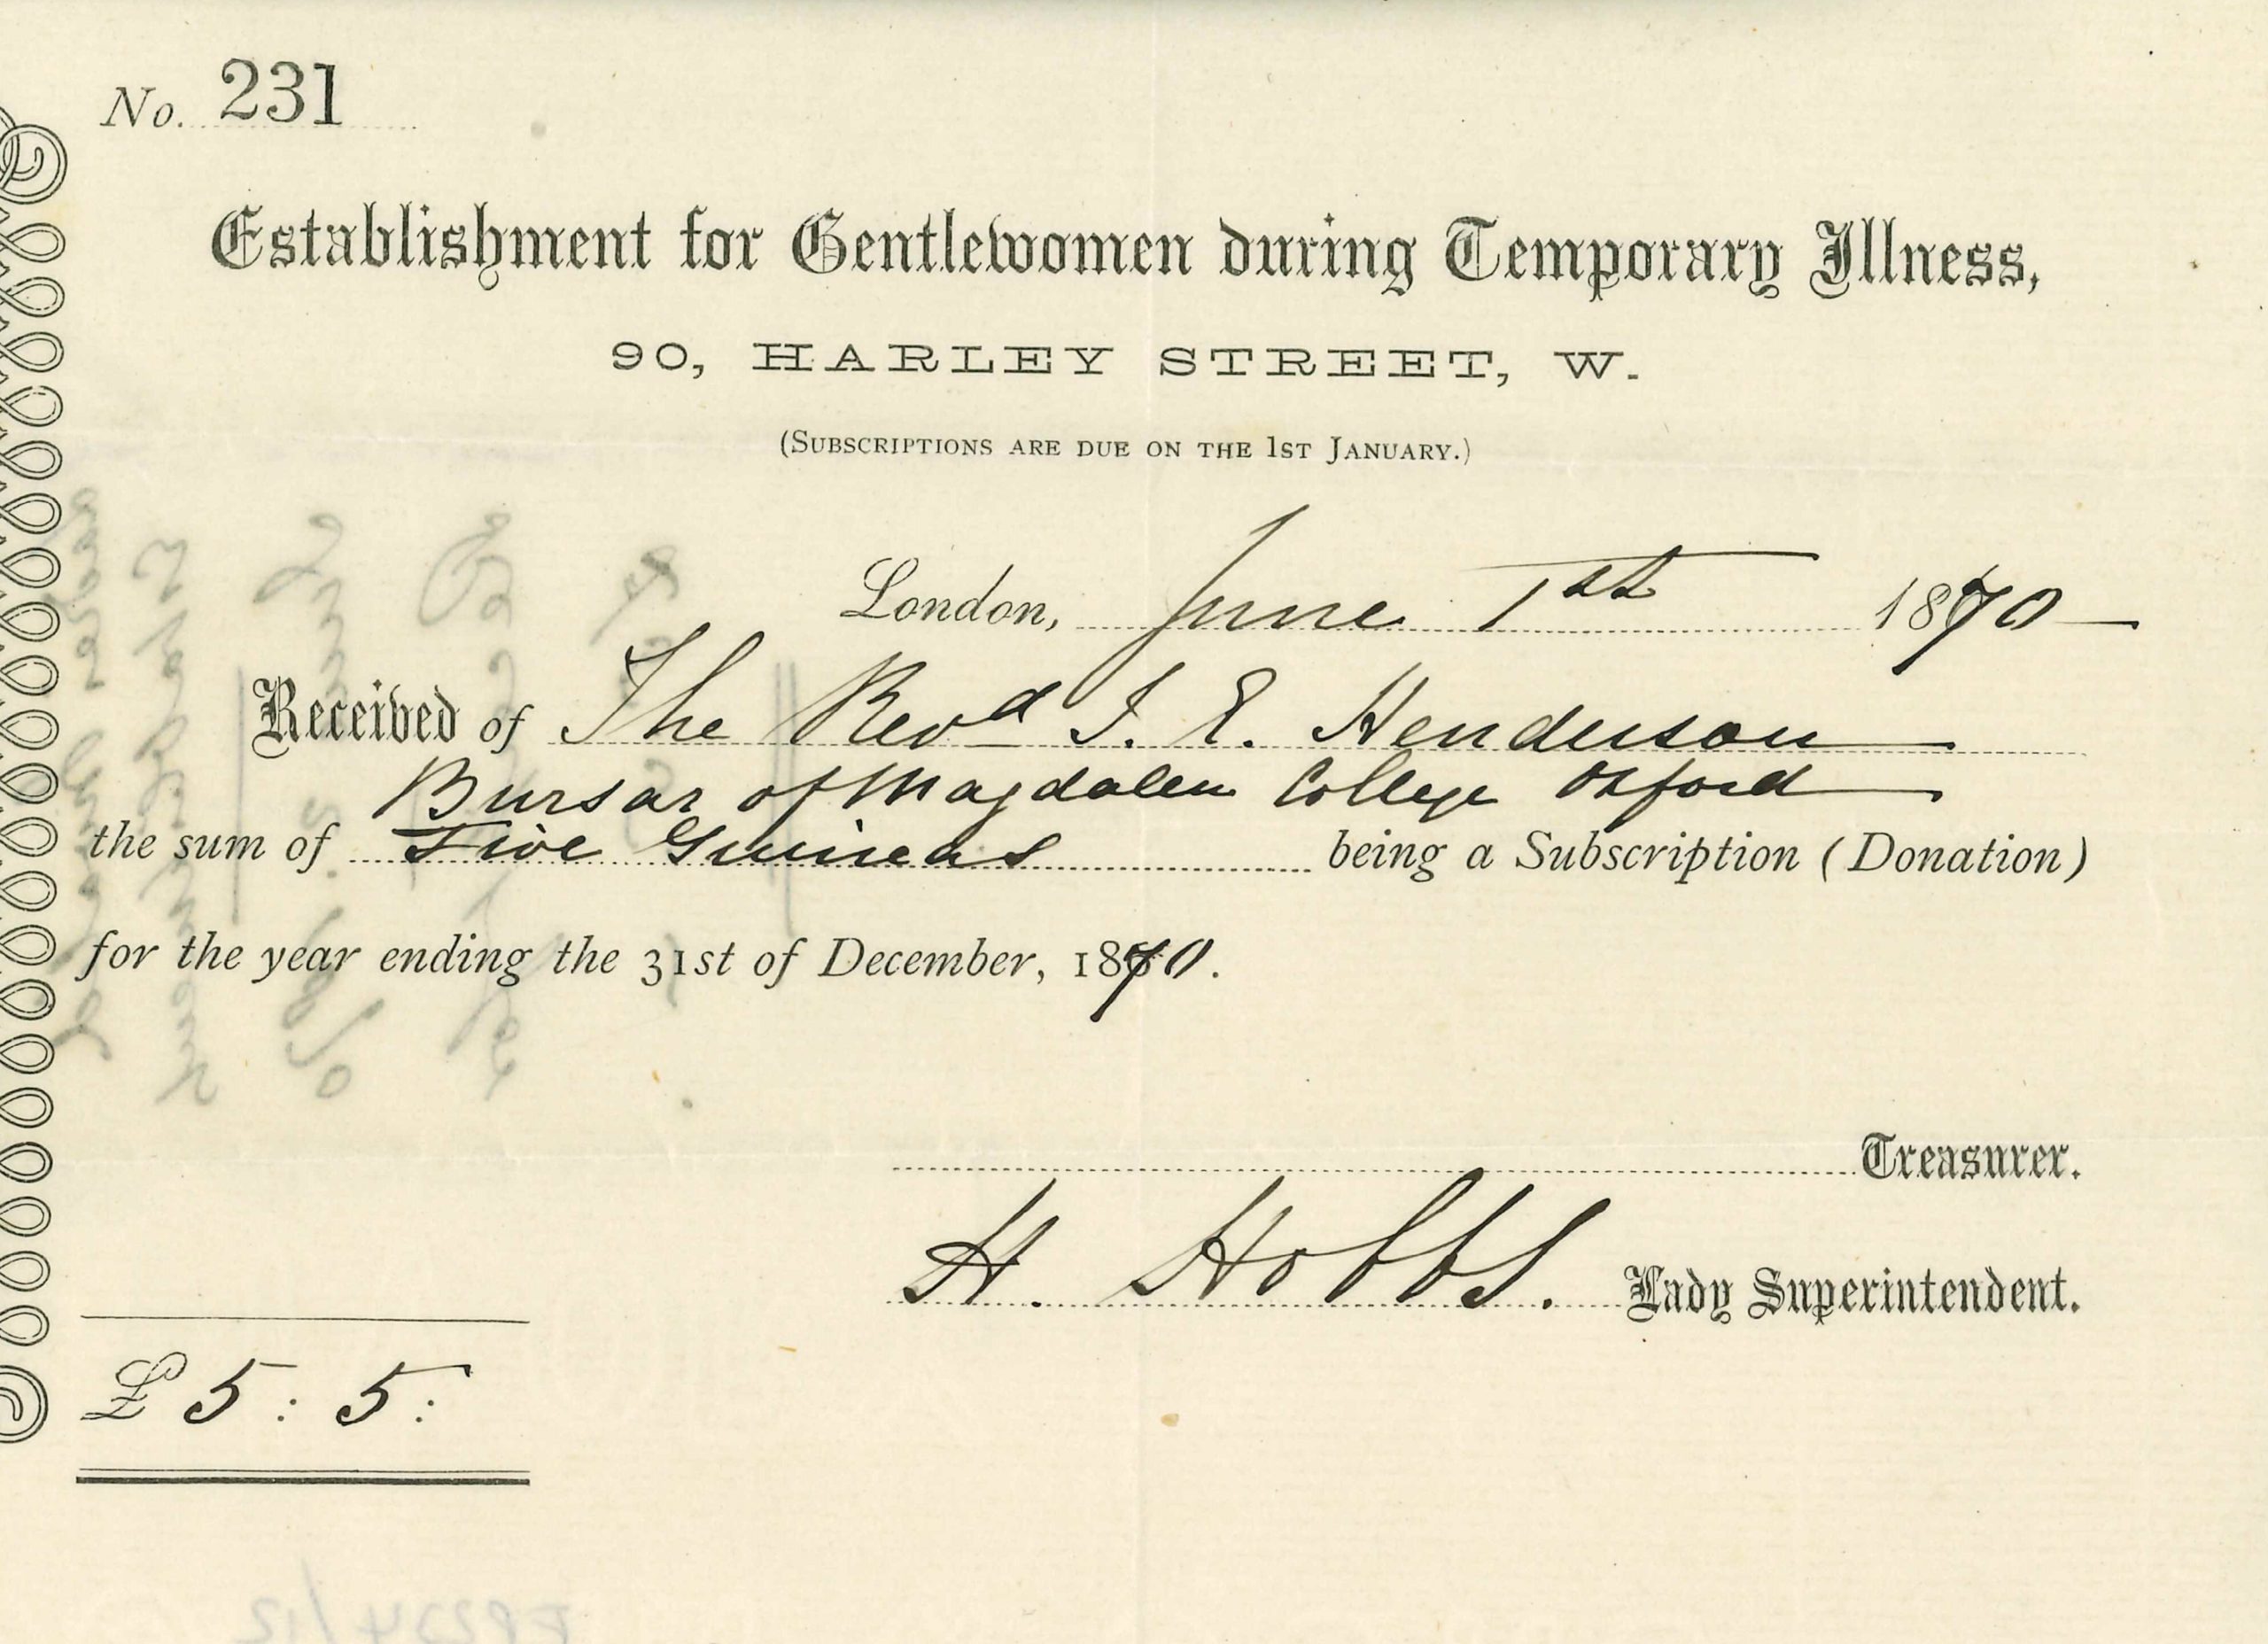 No. 231
Establishment for Gentlewomen during Temporary Illness,
90, HARLEY STREET, W.
(SUBSCRIPTIONS ARE DUE ON THE 1ST JANUARY.)
London, June 1st 1870
Received of The Revd I. E. Henderson
Bursar of Magdalen College Oxford
the sum of Five Guineas being a Subscription (Donation)
for the year ending the 31st of December, 1870.
Treasurer.
H. Hobbs. Lady Superintendent.
£ 5 : 5 :